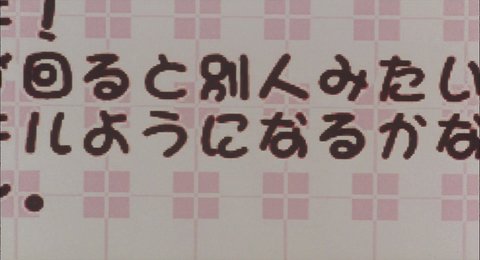 ！
回ると別人みたい
ルようになるかな